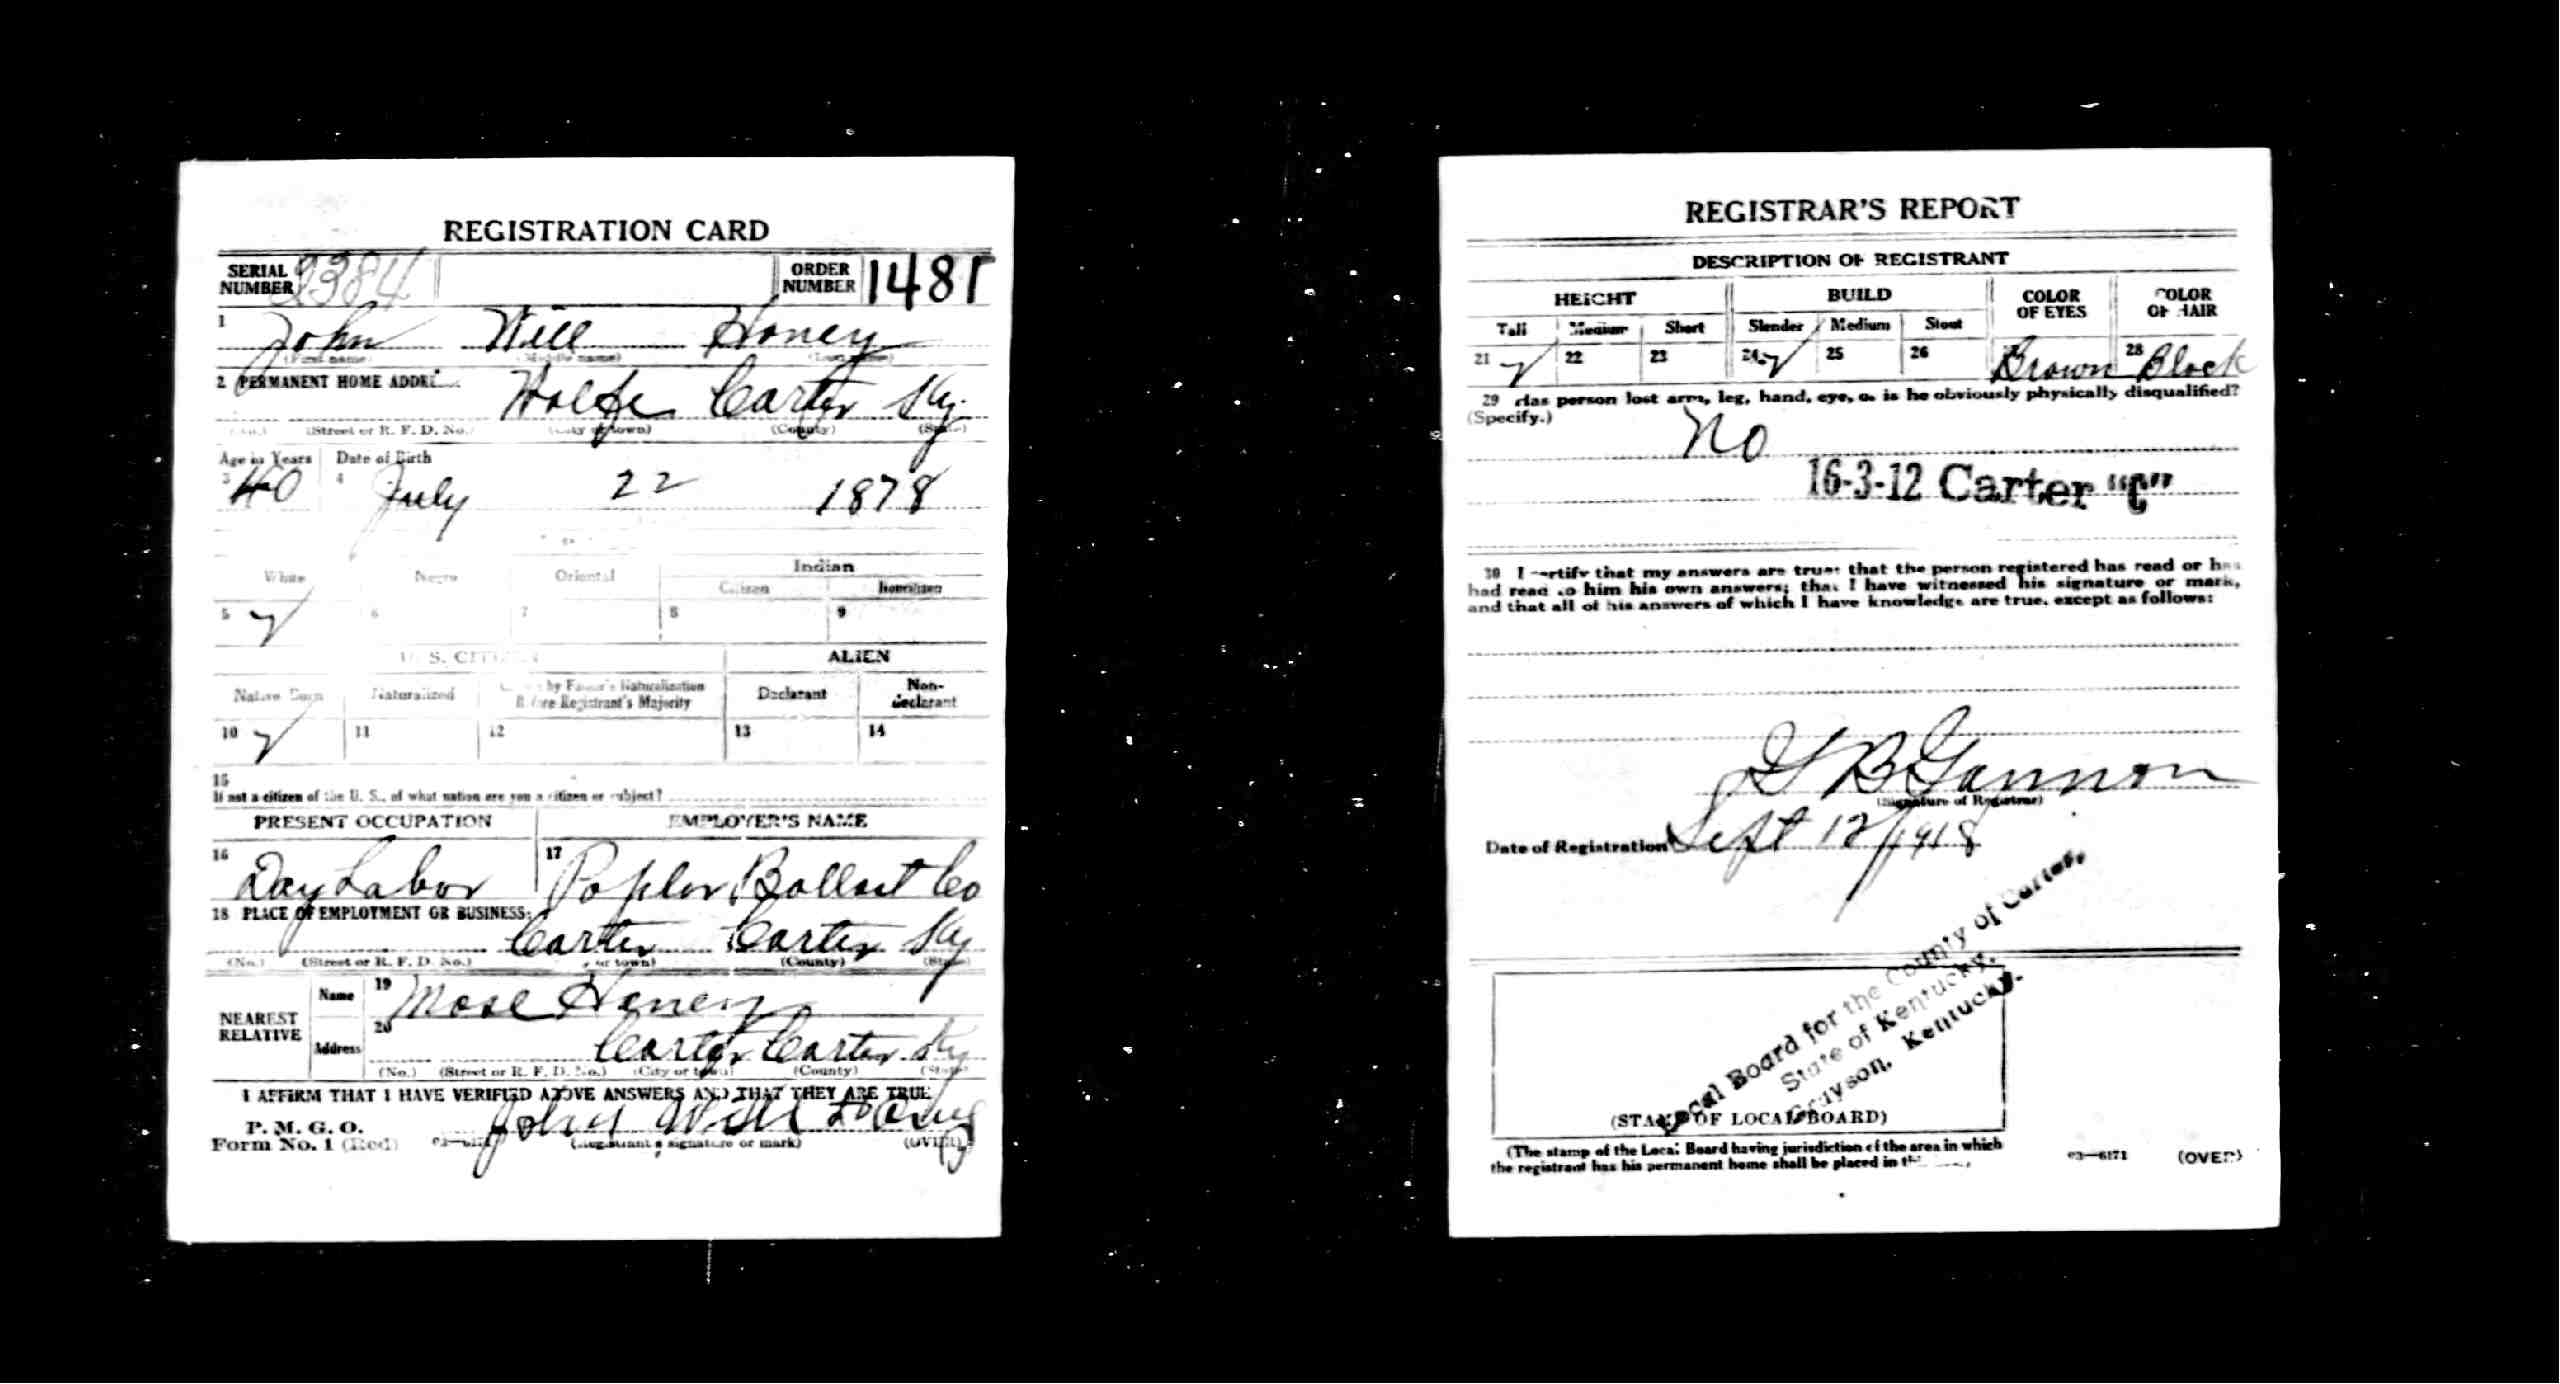 REGISTRATION CARD
SERIAL NUMBER 2384 ORDER NUMBER 1481
1 John Will Honey
(First name) (Middle name) (Last name)
2 PERMANENT HOME ADDRE
Wolfe Carter Ky.
(No.) (Street or R. F. D. No.) (City or town) (County) (State)
Age in Years Date of Birth
3 40 4 July 22 1878
White Negro Oriental Indian
Citizen Noncitizen
5 ✓ 6 7 8 9
U. S. CITIZEN ALIEN
Native Born Naturalized by Father's Naturalization Before Registrant's Majority Declarant Non-declarant
10 ✓ 11 12 13 14
15
If not a citizen of the U. S., of what nation are you a citizen or subject?
PRESENT OCCUPATION EMPLOYER'S NAME
16 Day Labor 17 Poplar Ballast Co
18 PLACE OF EMPLOYMENT OR BUSINESS:
Carter Carter Ky
(No.) (Street or R. F. D. No.) or town) (County) (State)
NEAREST RELATIVE
Name 19 Mose Honey
Address 20 Carter Carter Ky
(No.) (Street or R. F. D. No.) (City or town) (County) (State)
I AFFIRM THAT I HAVE VERIFIED ABOVE ANSWERS AND THAT THEY ARE TRUE
P. M. G. O.
Form No. 1 (Red) 03—6171 John Will Honey (OVER)
(Registrant's signature or mark)
REGISTRAR'S REPORT
DESCRIPTION OF REGISTRANT
HEIGHT BUILD COLOR OF EYES COLOR OF HAIR
Tall Medium Short Slender Medium Stout
21 ✓ 22 23 24 ✓ 25 26 Brown 28 Black
29 Has person lost arm, leg, hand, eye, or is he obviously physically disqualified?
(Specify.)
No
16-3-12 Carter "C"
30 I certify that my answers are true; that the person registered has read or has
had read to him his own answers; that I have witnessed his signature or mark,
and that all of his answers of which I have knowledge are true, except as follows:
B Gannon
(Signature of Registrar)
Date of Registration Sept 12/1918
Local Board for the County of Carter,
State of Kentucky,
Grayson, Kentucky.
(STAMP OF LOCAL BOARD)
(The stamp of the Local Board having jurisdiction of the area in which
the registrant has his permanent home shall be placed in
03—6171 (OVER)